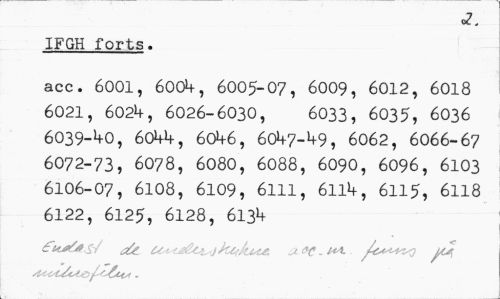 2.
IFGH forts.
acc. 6001, 6004, 6005-07, 6009, 6012, 6018
6021, 6024, 6026-6030, 6033, 6035, 6036
6039-40, 6044, 6046, 6047-49, 6062, 6066-67
6072-73, 6078, 6080, 6088, 6090, 6096, 6103
6106-07, 6108, 6109, 6111, 6114, 6115, 6118
6122, 6125, 6128, 6134
Endast de understrukna acc.nr. finns på
mikrofilm.